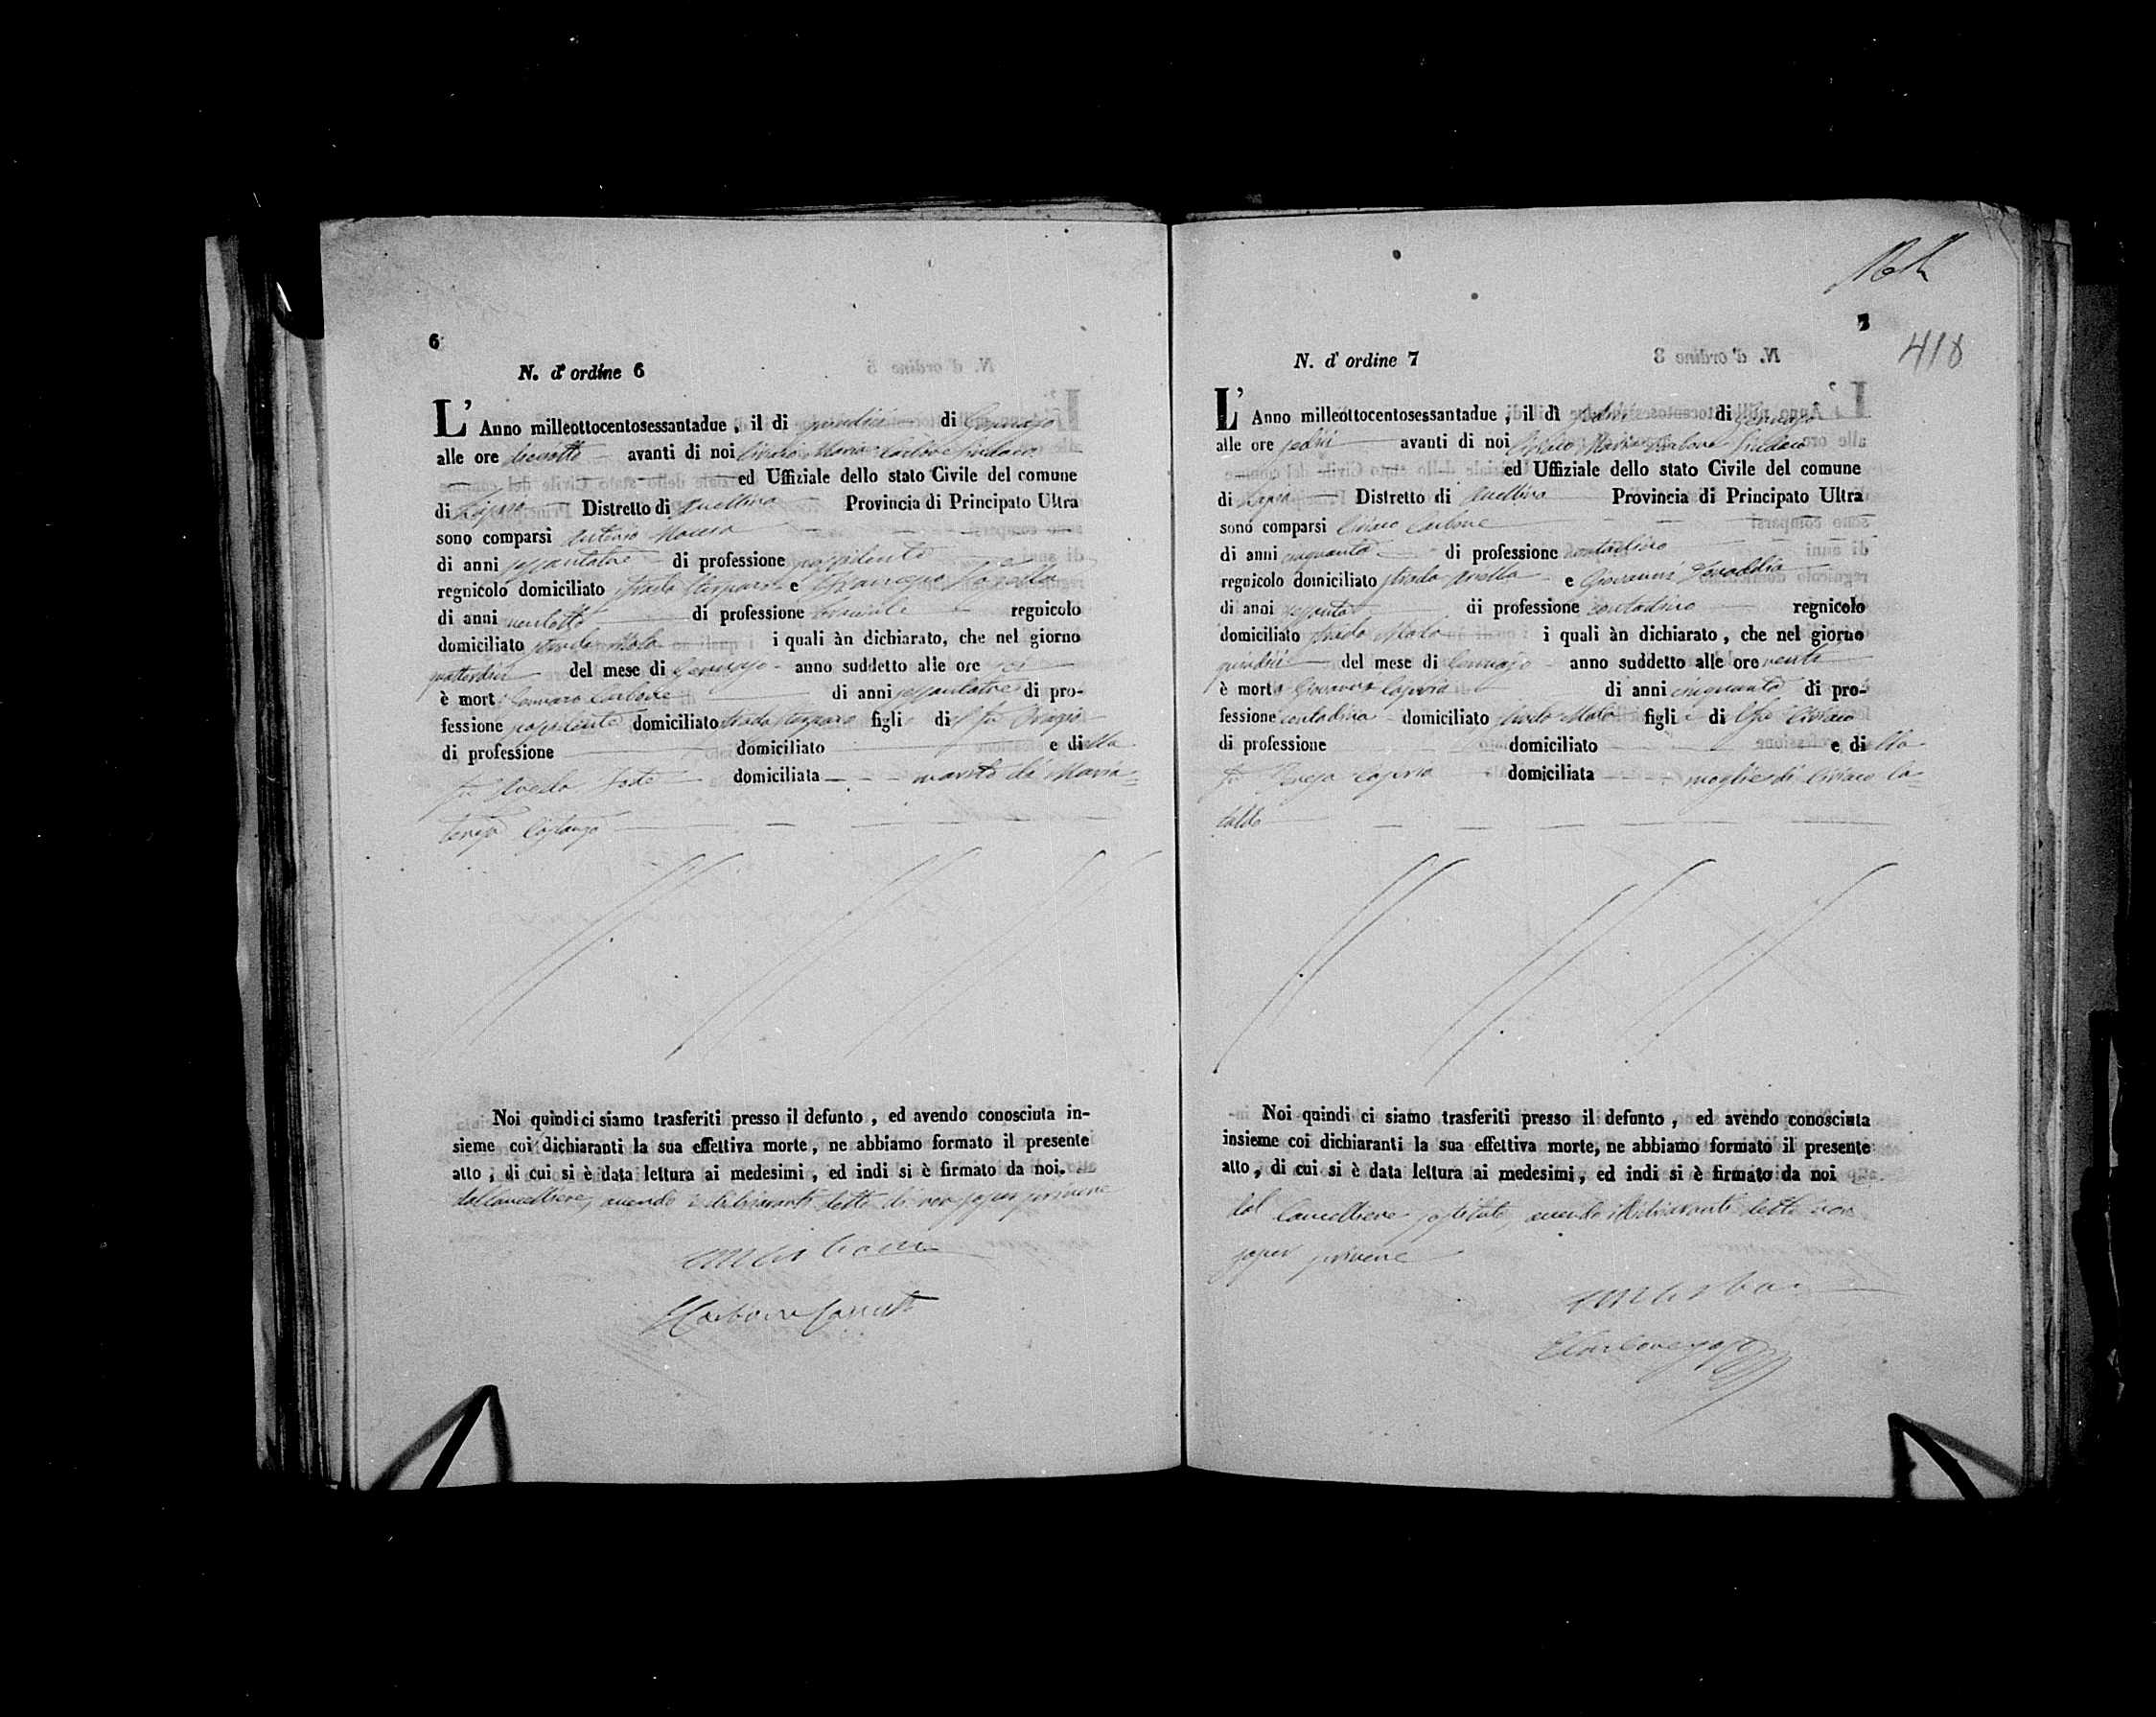 6
N. d' ordine 6
L' Anno milleottocentosessantadue, il dì quindici di Gennajo
alle ore diciotto avanti di noi Ciriaco Maria Carbone Sindaco
ed Uffiziale dello stato Civile del comune
di Distretto di Avellino Provincia di Principato Ultra
sono comparsi Antonio
di anni sessantatre di professione possidente
regnicolo domiciliato strada e
di anni ventotto di professione regnicolo
domiciliato strada Molo i quali àn dichiarato, che nel giorno
quattordici del mese di Gennajo anno suddetto alle ore sei
è mort Gennaro Carbone di anni sessantatre di pro-
fessione possidente domiciliato strada figli di fu Orazio
di professione domiciliato e di lla
fu domiciliata marito di Maria
Teresa Costanza
Noi quindi ci siamo trasferiti presso il defunto, ed avendo conosciuta in-
sieme coi dichiaranti la sua effettiva morte, ne abbiamo formato il presente
atto, di cui si è data lettura ai medesimi, ed indi si è firmato da noi.
dal Cancelliere, avendo i dichiaranti detto di non saper scrivere
7
418
N. d' ordine 7
L' Anno milleottocentosessantadue, il dì sedici di Gennajo
alle ore sedici avanti di noi Ciriaco Maria Carbone Sindaco
ed Uffiziale dello stato Civile del comune
di Distretto di Avellino Provincia di Principato Ultra
sono comparsi Ciriaco Carbone
di anni cinquanta di professione contadino
regnicolo domiciliato strada e Giovanni
di anni sessanta di professione contadino regnicolo
domiciliato strada Molo i quali àn dichiarato, che nel giorno
quindici del mese di Gennajo anno suddetto alle ore venti
è morta Giovanna Capria di anni cinquanta di pro-
fessione contadina domiciliato strada Molo figli a di fu Ciriaco
di professione domiciliato e di lla
fu Teresa Capria domiciliata moglie di Ciriaco Ca-
taldo
Noi quindi ci siamo trasferiti presso il defunto, ed avendo conosciuta
insieme coi dichiaranti la sua effettiva morte, ne abbiamo formato il presente
atto, di cui si è data lettura ai medesimi, ed indi si è firmato da noi
dal Cancelliere sostituto, avendo i dichiaranti detto non
saper scrivere